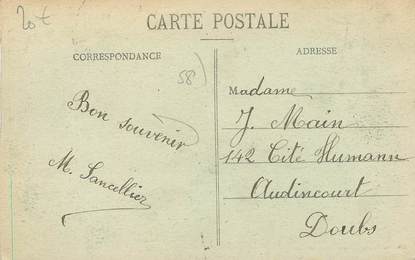 20t
CARTE POSTALE
CORRESPONDANCE
ADRESSE
58
Bon souvenir
M. Lancellier
Madame
J. Main
142 Cité Humann
Audincourt
Doubs